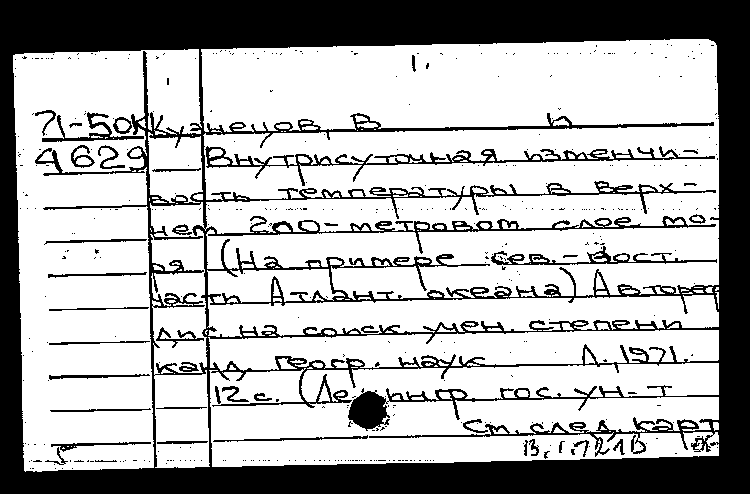 1.
71-50к Кузнецов, В п
4629 Внутрисуточная изменчи-
вость температуры в верх-
нем 200-метровом слое мо-
ря (На примере сев.-вост.
части Атлант. океана) Автореф
дис. на соиск. учен. степени
канд. геогр. наук Л., 1971.
12 с. (Ле нингр. гос. ун-т
См. след. карт